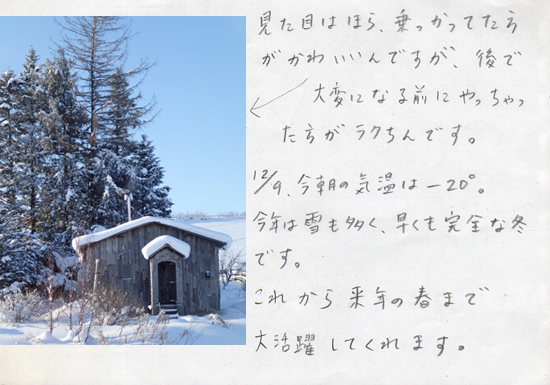 見た目はほら、乗っかってた方
がかわいいんですが、後で
大変になる前にやっちゃっ
た方がラクちんです。
12/9、今朝の気温は－20°。
今年は雪も多く、早くも完全な冬
です。
これから来年の春まで
大活躍してくれます。